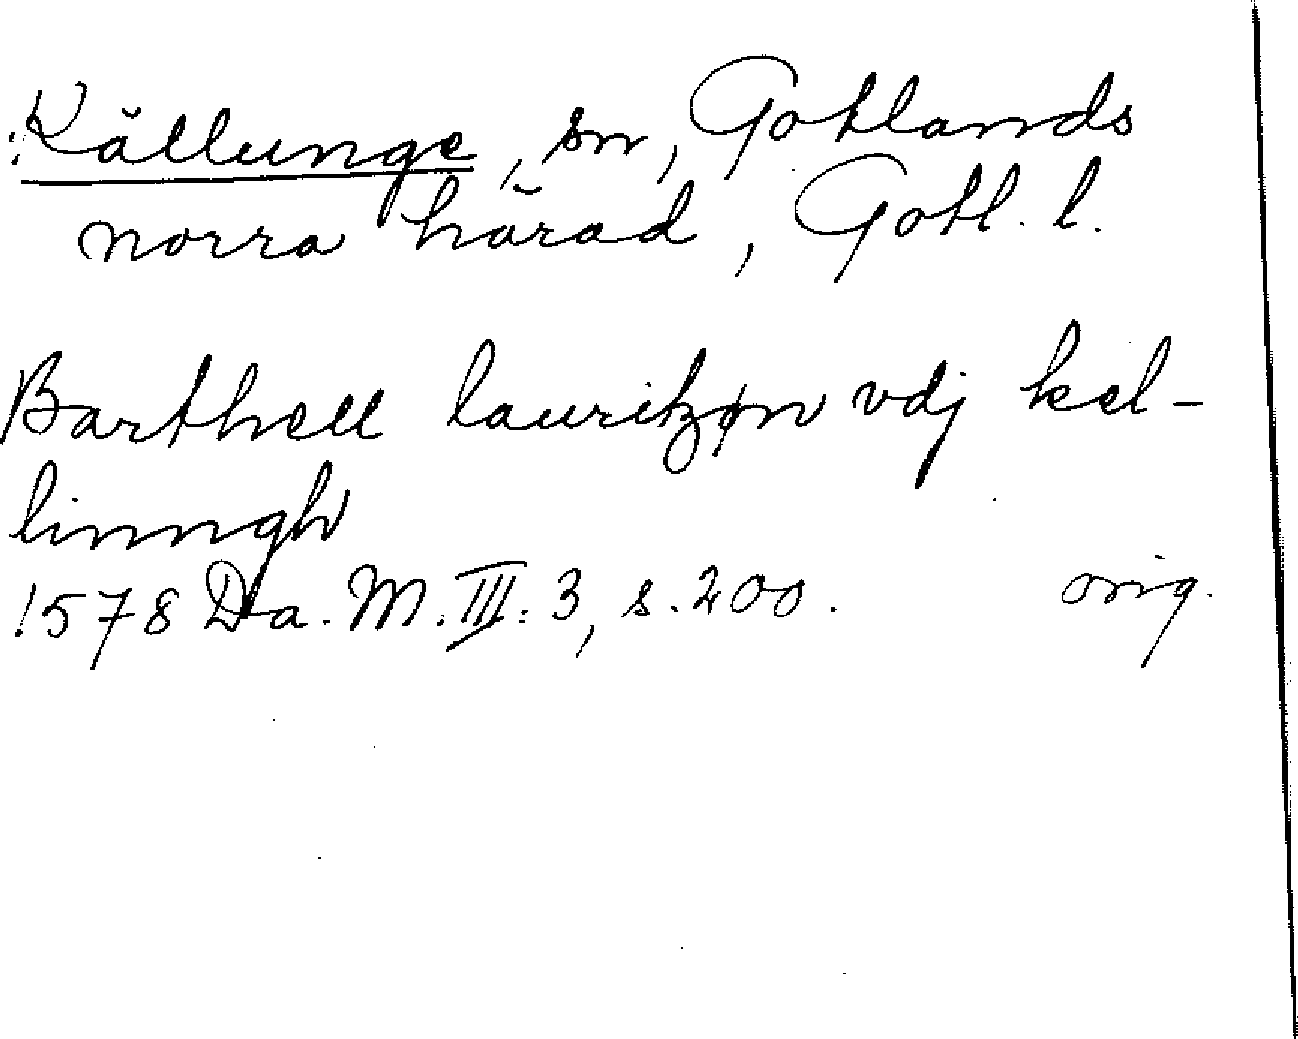 Källunge, sn, Gotlands
norra härad, Gotl. l.
Barthell lauritzøn vdj kel-
linngh
1578 Da. M. III: 3, s. 200. orig.